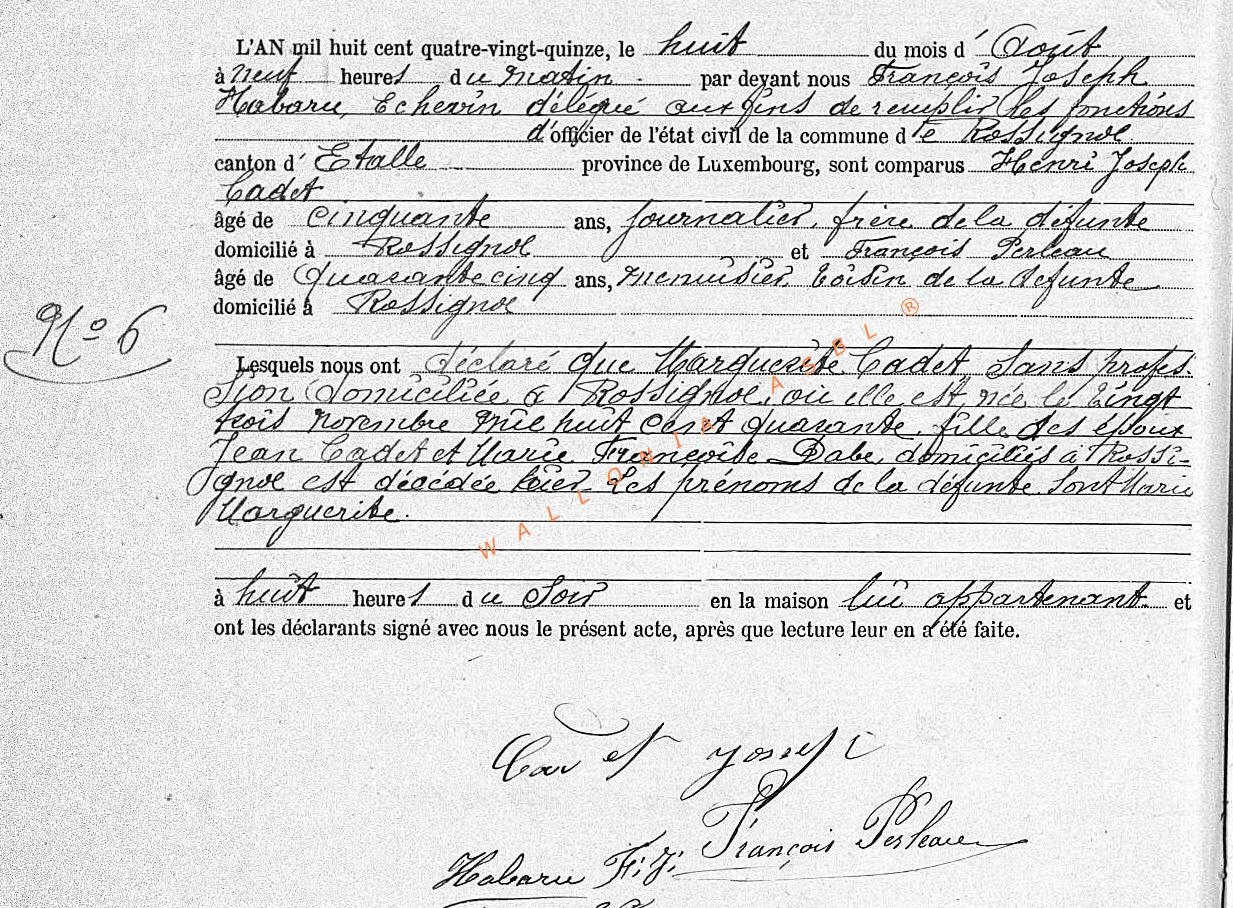 L'AN mil huit cent quatre-vingt-quinze, le huit du mois d' Août
à neuf heures du matin par devant nous François Joseph
Habaru, Echevin délégué aux fins de remplir les fonctions
d'officier de l'état civil de la commune de Rossignol
canton d' Etalle province de Luxembourg, sont comparus Henri Joseph
Cadet
âgé de cinquante ans, journalier, frère de la défunte
domicilié à Rossignol et François Perleau
âgé de quarante cinq ans, menuisier, voisin de la défunte
domicilié à Rossignol
N° 6
Lesquels nous ont déclaré que Marguerite Cadet sans profes-
sion domiciliée à Rossignol, où elle est née le vingt
trois novembre mil huit cent quarante, fille des époux
Jean Cadet et Marie Françoise Dabe, domiciliés à Rossi-
gnol est décédée hier. Les prénoms de la défunte sont Marie
Marguerite.
WALLONIA ASBL ®
à huit heures du soir en la maison lui appartenant. et
ont les déclarants signé avec nous le présent acte, après que lecture leur en a été faite.
Cadet
François Perleau
Habaru F. J.